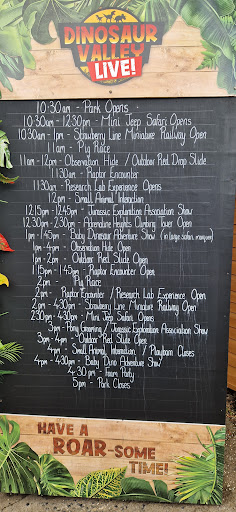 DINOSAUR
VALLEY
LIVE!
10:30am - Park Opens
10:30am - 12:30pm - Mini Jeep Safari Opens
10:30am - 1pm - Strawberry Line Miniature Railway Open
11am - Pig Race
11am - 12pm - Observation Hide / Outdoor Red Drop Slide
11:30am - Raptor Encounter
11:30am - Research Lab Experience Opens
12pm - Small Animal Interaction
12:15pm - 12:45pm - Jurassic Exploration Association Show
12:30pm - 2:30pm - Adrenaline Heights Climbing Tower Open
1pm - 1:45pm - Baby Dinosaur Adventure Show (in large safari marquee)
1pm - 4pm - Observation Hide Open
1pm - 2pm - Outdoor Red Slide Open
1:15pm - 1:45pm - Raptor Encounter Open
2pm - Pig Race
2pm - Raptor Encounter / Research Lab Experience Open
2pm - 4:30pm - Strawberry Line Miniature Railway Open
2:30pm - 4:30pm - Mini Jeep Safari Opens
3pm - Pony Grooming / Jurassic Exploration Association Show
3pm - 4pm - Outdoor Red Slide Open
4pm - Small Animal Interaction / Playbarn Closes
4pm - 4:30pm - Baby Dino Adventure Show
4:30pm - Foam Party
5pm - Park Closes
HAVE A
ROAR-SOME
TIME!